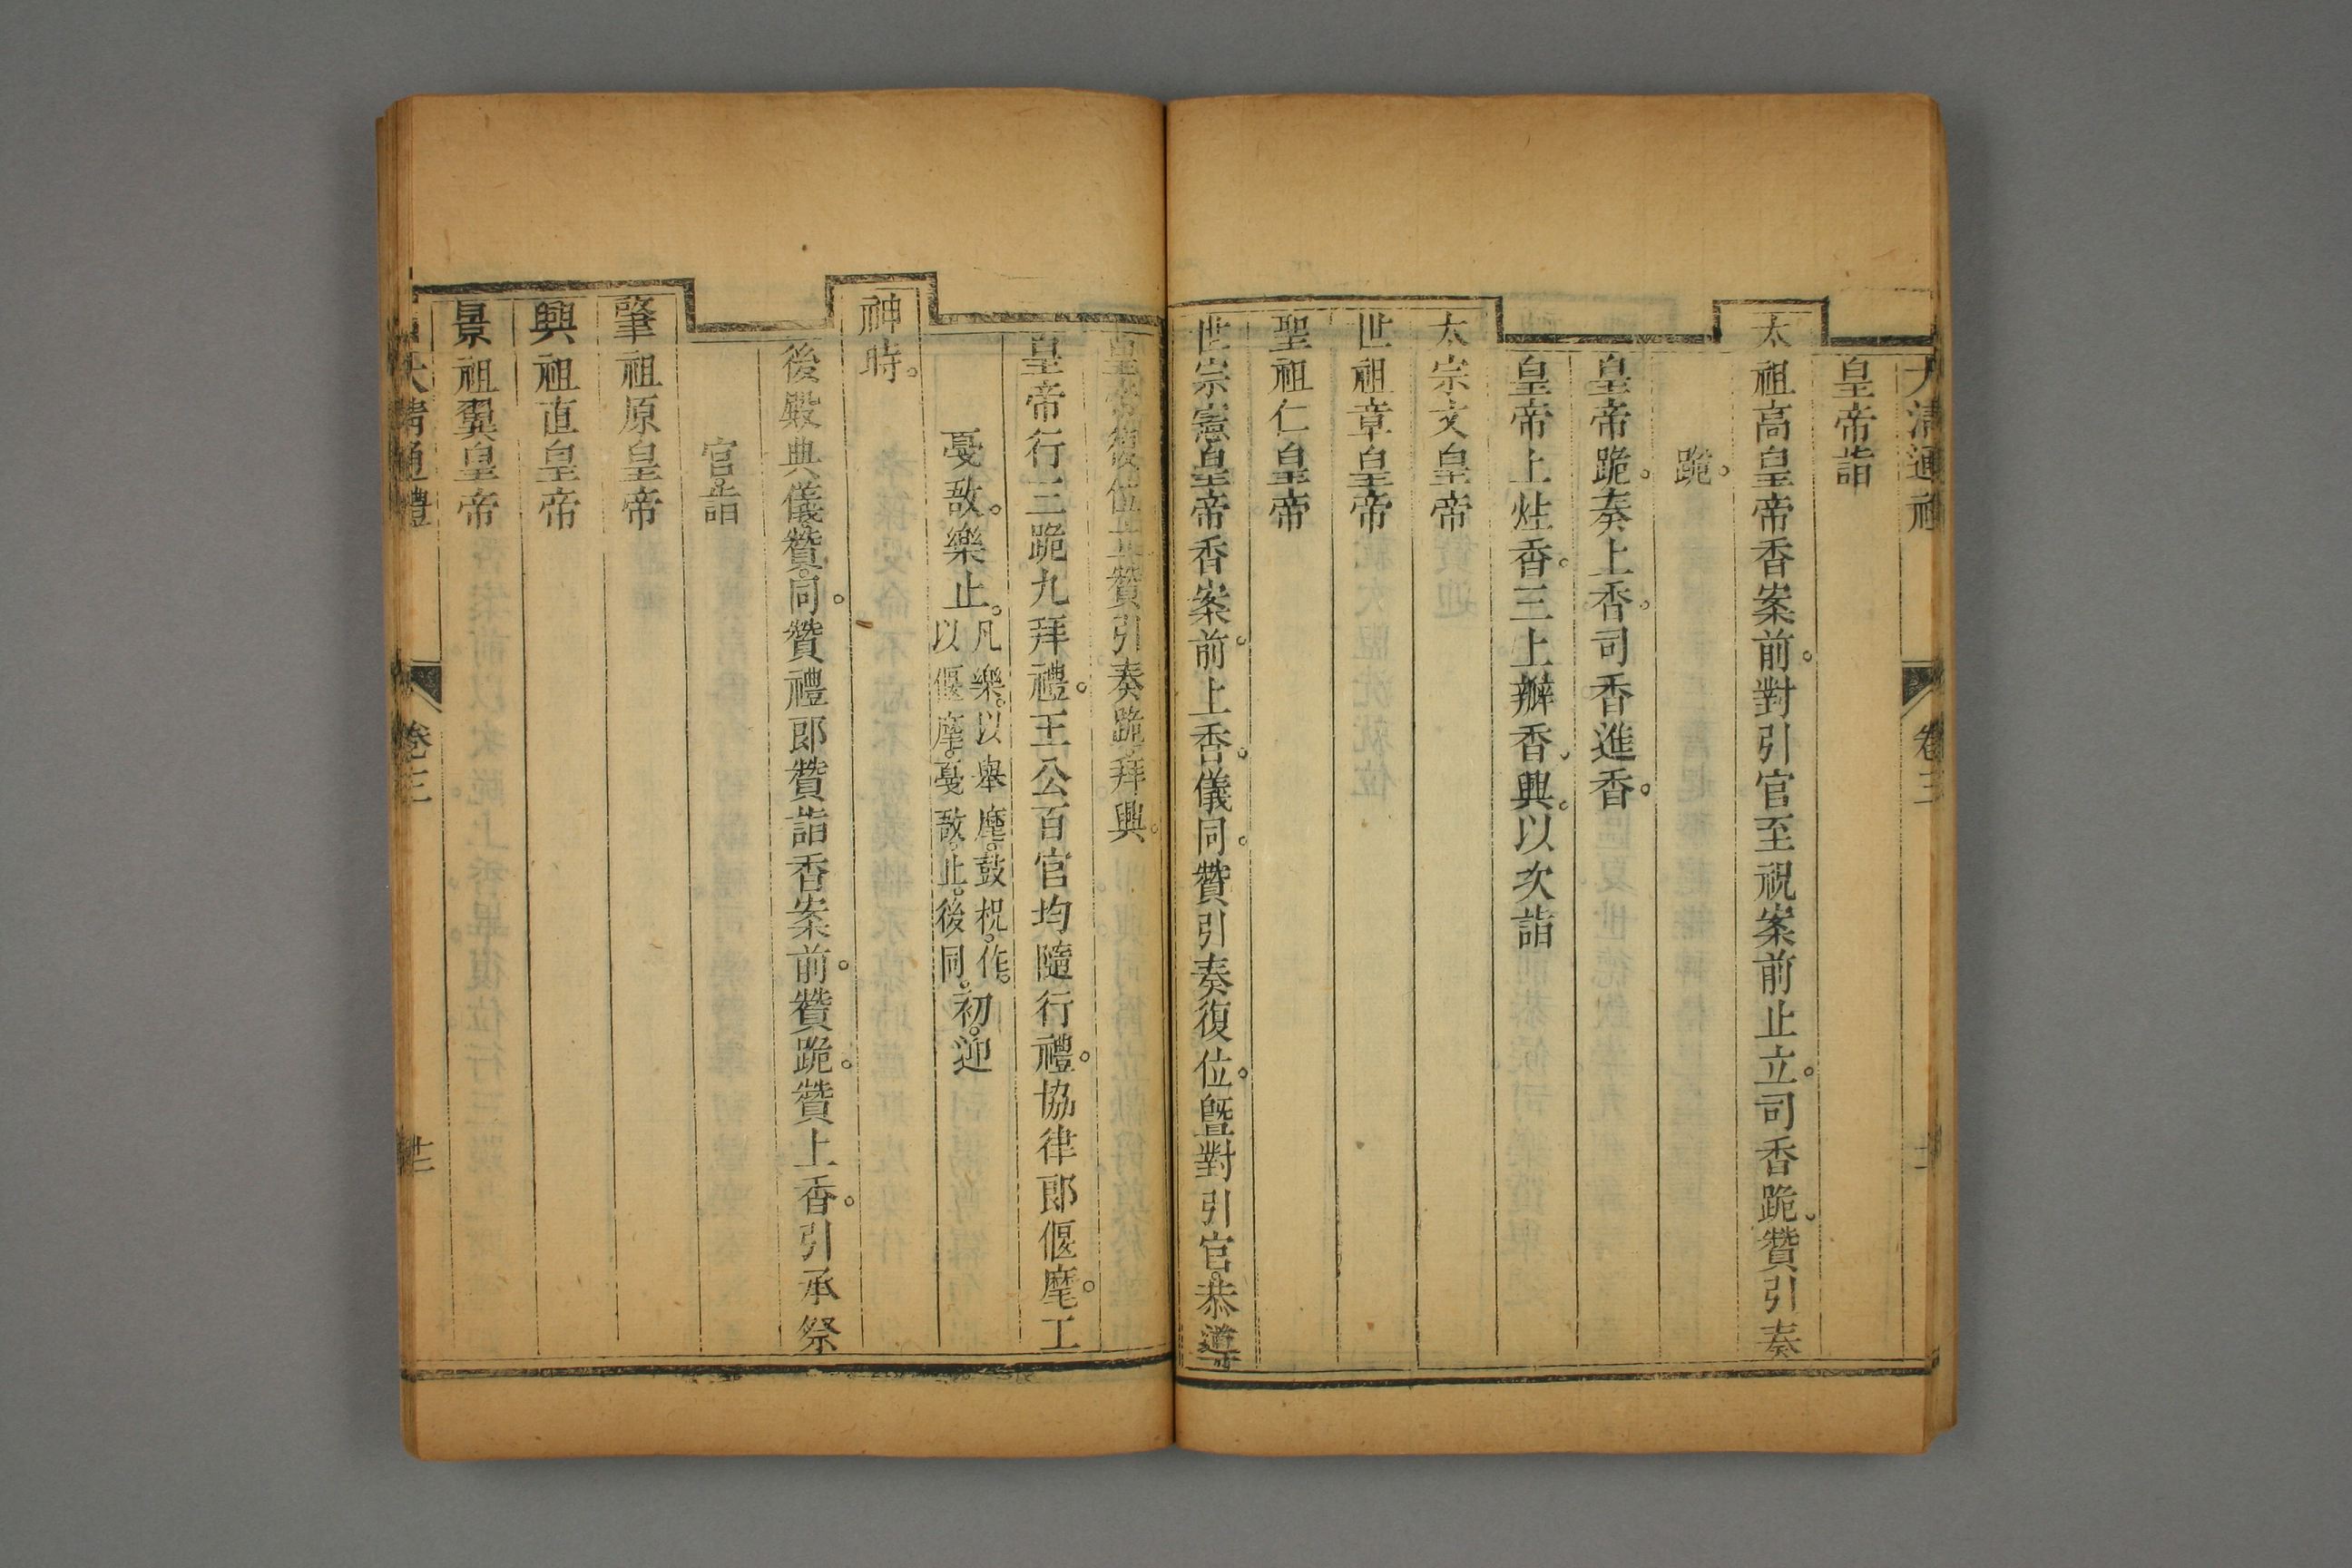 大清通禮 卷三
皇帝詣
太祖高皇帝香案前。對引官至祝案前止立。司香跪。贊引奏
跪。
皇帝跪。奏上香。司香進香。
皇帝上炷香。三上瓣香。興。以次詣
太宗文皇帝
世祖章皇帝
聖祖仁皇帝
世宗憲皇帝香案前。上香。儀同。贊引奏復位。曁對引官。恭導
皇帝復位立。贊引奏跪。拜。興。
皇帝行三跪九拜禮。王公百官均隨行禮。協律郎偃麾。工
戞敔。樂止。凡樂。以舉麾。鼓柷。作。以偃麾。戞敔。止。後同。初。迎
神時。
後殿典儀。贊。同。贊禮郎贊詣香案前。贊跪。贊上香。引承祭
官。詣
肇祖原皇帝
興祖直皇帝
景祖翼皇帝
大清通禮 卷三 十二